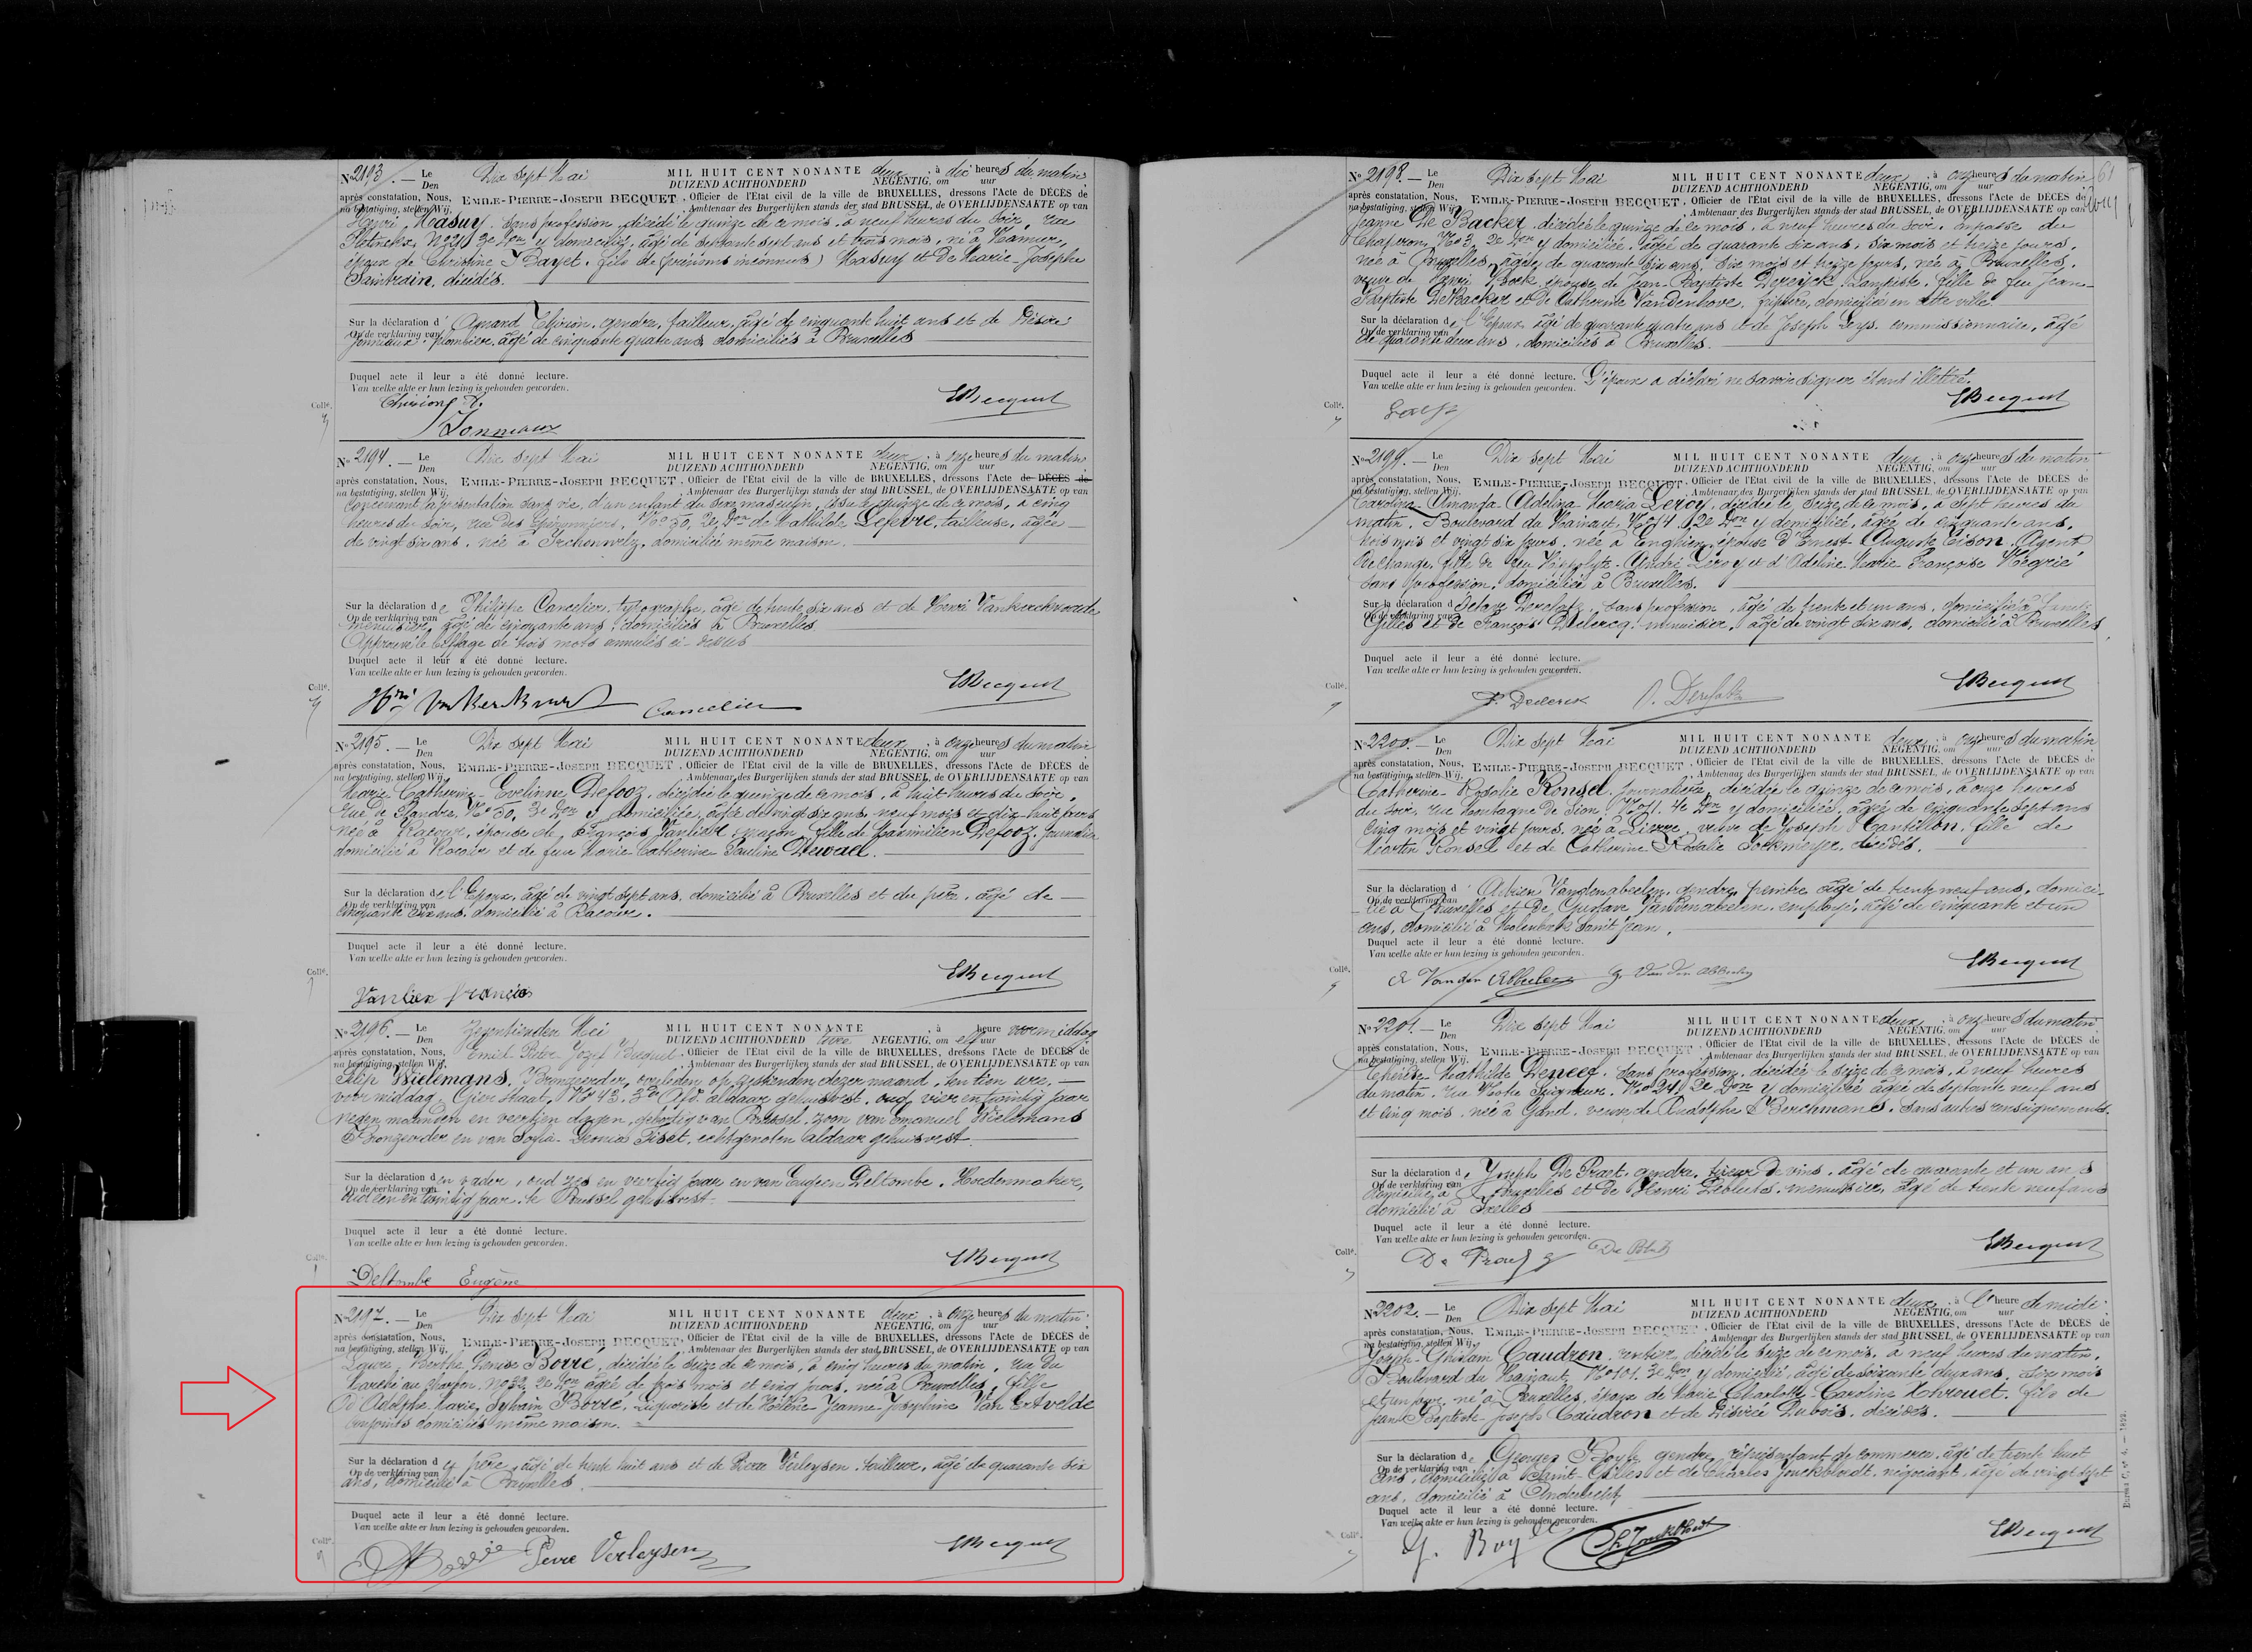 No 2193. — Le Dix sept Mai MIL HUIT CENT NONANTE deux, à dix heures du matin
Den DUIZEND ACHTHONDERD NEGENTIG, om uur
après constatation, Nous, EMILE-PIERRE-JOSEPH BECQUET, Officier de l'État civil de la ville de BRUXELLES, dressons l'Acte de DÉCES de
na bestatiging, stellen Wij, Ambtenaar des Burgerlijken stands der stad BRUSSEL, de OVERLIJDENSAKTE op van
Henri Masuy, sans profession, décédé le quinze de ce mois, à neuf heures du soir, rue
No 21, 3e Don y domicilié, âgé de septante sept ans et trois mois, né à Namur,
époux de Christine Bayet, fils de (prénoms inconnus) Masuy et de Marie-Josèphe
Saintrain, décédés.
Sur la déclaration d' Amand Thirion, gendre, tailleur, âgé de cinquante huit ans et de Désiré
Op de verklaring van
plombier, âgé de cinquante quatre ans domiciliés à Bruxelles
Duquel acte il leur a été donné lecture.
Van welke akte er hun lezing is gehouden geworden.
Collé.
EBecquet
No 2194. — Le Dix sept Mai MIL HUIT CENT NONANTE deux, à onze heures du matin
Den DUIZEND ACHTHONDERD NEGENTIG, om uur
après constatation, Nous, EMILE-PIERRE-JOSEPH BECQUET, Officier de l'État civil de la ville de BRUXELLES, dressons l'Acte de DÉCES de
na bestatiging, stellen Wij, Ambtenaar des Burgerlijken stands der stad BRUSSEL, de OVERLIJDENSAKTE op van
concernant la présentation sans vie, d'un enfant du sexe masculin, issu le quinze de ce mois, à cinq
heures du soir, rue des Éperonniers, No 50, 2e Don de Mathilde Lefevre, tailleuse, âgée
de vingt six ans, née à domiciliée même maison.
Sur la déclaration de Philippe Cancelier, typographe, âgé de trente six ans et de Henri Vankerckvoorde
Op de verklaring van
menuisier, âgé de cinquante ans, domiciliés à Bruxelles
Approuvé le biffage de trois mots annulés ci-dessus
Duquel acte il leur a été donné lecture.
Van welke akte er hun lezing is gehouden geworden.
Collé.
Cancelier
EBecquet
No 2195. — Le Dix sept Mai MIL HUIT CENT NONANTE deux, à onze heures du matin
Den DUIZEND ACHTHONDERD NEGENTIG, om uur
après constatation, Nous, EMILE-PIERRE-JOSEPH BECQUET, Officier de l'État civil de la ville de BRUXELLES, dressons l'Acte de DÉCES de
na bestatiging, stellen Wij, Ambtenaar des Burgerlijken stands der stad BRUSSEL, de OVERLIJDENSAKTE op van
Marie Catherine Evelinne Defooz, décédée le quinze de ce mois, à huit heures du soir,
rue de Flandre, No 50, 3e Don y domiciliée, âgée de vingt six ans, neuf mois et dix huit jours
née à Racour, épouse de François Vanlier, maçon, fille de Maximilien Defooz, journalier
domicilié à Racour et de feue Marie Catherine Pauline Dewael.
Sur la déclaration de l'Epoux, âgé de vingt sept ans, domicilié à Bruxelles et du père, âgé de
Op de verklaring van
cinquante six ans, domicilié à Racour.
Duquel acte il leur a été donné lecture.
Van welke akte er hun lezing is gehouden geworden.
Collé.
Vanlier françois
EBecquet
No 2196. — Le Zeventienden Mei MIL HUIT CENT NONANTE, à heure voormiddag
Den DUIZEND ACHTHONDERD twee NEGENTIG, om elf uur
après constatation, Nous, Emiel Pieter Jozef Becquet, Officier de l'État civil de la ville de BRUXELLES, dressons l'Acte de DÉCES de
na bestatiging, stellen Wij, Ambtenaar des Burgerlijken stands der stad BRUSSEL, de OVERLIJDENSAKTE op van
Filip Wielemans, Bronzeerder, overleden op zestienden dezer maand, ten tien ure,
voormiddag, No 43, 3de Afd. aldaar gehuisvest, oud vier en twintig jaar
negen maanden en veertien dagen, geboortig van Brussel, zoon van Emanuel Wielemans
Bronzeerder en van Sofia Leonia Piset, echtgenoten aldaar gehuisvest.
Sur la déclaration den vader, oud zes en veertig jaar en van Eugeen Deltombe, Hoedenmaker,
Op de verklaring van
twintig jaar, te Brussel gehuisvest.
Duquel acte il leur a été donné lecture.
Van welke akte er hun lezing is gehouden geworden.
Collé.
Deltombe Eugène
EBecquet
No 2197. — Le Dix sept Mai MIL HUIT CENT NONANTE deux, à onze heures du matin
Den DUIZEND ACHTHONDERD NEGENTIG, om uur
après constatation, Nous, EMILE-PIERRE-JOSEPH BECQUET, Officier de l'État civil de la ville de BRUXELLES, dressons l'Acte de DÉCES de
na bestatiging, stellen Wij, Ambtenaar des Burgerlijken stands der stad BRUSSEL, de OVERLIJDENSAKTE op van
Berthe Denise Borré, décédée le seize de ce mois, à cinq heures du matin, rue du
Marché au Charbon, No 32, 2e Don âgée de trois mois et cinq jours, née à Bruxelles, fille
d'Adolphe Marie Sylvain Borré, Liquoriste et de Hélène Jeanne Joséphine Van Ertvelde
conjoints domiciliés même maison.
Sur la déclaration du père, âgé de trente huit ans et de Pierre Verleysen, tailleur, âgé de quarante six
Op de verklaring van
ans, domiciliés à Bruxelles.
Duquel acte il leur a été donné lecture.
Van welke akte er hun lezing is gehouden geworden.
Collé.
ABorré Pierre Verleysen
EBecquet
No 2198. — Le Dix sept Mai MIL HUIT CENT NONANTE deux, à onze heures du matin 61
Den DUIZEND ACHTHONDERD NEGENTIG, om uur
après constatation, Nous, EMILE-PIERRE-JOSEPH BECQUET, Officier de l'État civil de la ville de BRUXELLES, dressons l'Acte de DÉCES de
na bestatiging, stellen Wij, Ambtenaar des Burgerlijken stands der stad BRUSSEL, de OVERLIJDENSAKTE op van
Jeanne De Backer, décédée le quinze de ce mois, à neuf heures du soir, impasse du
Chaperon, No 3, 2e Don y domiciliée, âgée de quarante six ans, six mois et treize jours,
née à Bruxelles, âgée de quarante six ans, six mois et treize jours, née à Bruxelles,
veuve de Henri épouse de Jean-Baptiste Dereyck, Lampiste, fille de feu Jean-
Baptiste De Backer et de Catherine Vandenhove, fripière, domiciliée en cette ville.
Sur la déclaration de l'Epoux âgé de quarante quatre ans et de Joseph Goys, commissionnaire, âgé
Op de verklaring van
de quarante deux ans, domiciliés à Bruxelles.
Duquel acte il leur a été donné lecture. L'époux a déclaré ne savoir signer étant illettré.
Van welke akte er hun lezing is gehouden geworden.
Collé.
EBecquet
No 2199. — Le Dix sept Mai MIL HUIT CENT NONANTE deux, à onze heures du matin
Den DUIZEND ACHTHONDERD NEGENTIG, om uur
après constatation, Nous, EMILE-PIERRE-JOSEPH BECQUET, Officier de l'État civil de la ville de BRUXELLES, dressons l'Acte de DÉCES de
na bestatiging, stellen Wij, Ambtenaar des Burgerlijken stands der stad BRUSSEL, de OVERLIJDENSAKTE op van
Caroline Amanda Adelina Maria Leroy, décédée le seize de ce mois, à sept heures du
matin, Boulevard du Hainaut, No 14, 2e Don y domiciliée, âgée de cinquante ans,
trois mois et vingt six jours, née à Enghien, épouse d'Ernest Auguste Cison, Agent
de change, fille de feu Hippolyte André Leroy et d'Adeline Marie Françoise Négrié
sans profession, domiciliée à Bruxelles.
Sur la déclaration d'Octave sans profession, âgé de trente et un ans, domicilié à Saint-
Op de verklaring van
Gilles et de François Declercq, menuisier, âgé de vingt six ans, domicilié à Bruxelles
Duquel acte il leur a été donné lecture.
Van welke akte er hun lezing is gehouden geworden.
Collé.
EBecquet
No 2200. — Le Dix sept Mai MIL HUIT CENT NONANTE deux, à onze heures du matin
Den DUIZEND ACHTHONDERD NEGENTIG, om uur
après constatation, Nous, EMILE-PIERRE-JOSEPH BECQUET, Officier de l'État civil de la ville de BRUXELLES, dressons l'Acte de DÉCES de
na bestatiging, stellen Wij, Ambtenaar des Burgerlijken stands der stad BRUSSEL, de OVERLIJDENSAKTE op van
Catherine Rosalie Ronsel, journalière, décédée le quinze de ce mois, à onze heures
du soir, rue Montagne de Sion, No 1, 4e Don y domiciliée, âgée de cinquante sept ans
cinq mois et vingt jours, née à Lierre, veuve de Joseph Cantillon, fille de
Martin Ronsel et de Catherine Rosalie décédés.
Sur la déclaration d'Adrien Vandenabeelen, gendre, peintre âgé de trente neuf ans, domici-
Op de verklaring van
lié à Bruxelles et de Gustave Vandenabeelen, employé, âgé de cinquante et un
ans, domicilié à Molenbeek Saint Jean.
Duquel acte il leur a été donné lecture.
Van welke akte er hun lezing is gehouden geworden.
Collé.
EBecquet
No 2201. — Le Dix sept Mai MIL HUIT CENT NONANTE deux, à onze heures du matin
Den DUIZEND ACHTHONDERD NEGENTIG, om uur
après constatation, Nous, EMILE-PIERRE-JOSEPH BECQUET, Officier de l'État civil de la ville de BRUXELLES, dressons l'Acte de DÉCES de
na bestatiging, stellen Wij, Ambtenaar des Burgerlijken stands der stad BRUSSEL, de OVERLIJDENSAKTE op van
Thérèse Mathilde Deneef, sans profession, décédée le seize de ce mois, à neuf heures
du matin, rue Notre Seigneur, No 24, 2e Don y domiciliée âgée de septante neuf ans
et cinq mois, née à Gand, veuve de Rudolphe Berchmans, sans autres renseignements.
Sur la déclaration de Joseph De Praet, gendre, tireur de vins, âgé de quarante et un ans
Op de verklaring van
domicilié à Bruxelles et de Henri menuisier, âgé de trente neuf ans
domicilié à Ixelles
Duquel acte il leur a été donné lecture.
Van welke akte er hun lezing is gehouden geworden.
Collé.
EBecquet
No 2202. — Le Dix sept Mai MIL HUIT CENT NONANTE deux, à l' heure de midi
Den DUIZEND ACHTHONDERD NEGENTIG, om uur
après constatation, Nous, EMILE-PIERRE-JOSEPH BECQUET, Officier de l'État civil de la ville de BRUXELLES, dressons l'Acte de DÉCES de
na bestatiging, stellen Wij, Ambtenaar des Burgerlijken stands der stad BRUSSEL, de OVERLIJDENSAKTE op van
Joseph-Ghislain Caudron, rentier, décédé le seize de ce mois, à neuf heures du matin,
Boulevard du Hainaut, No 101, 3e Don y domicilié, âgé de soixante deux ans, six mois
et un jour, né à Bruxelles, époux de Marie Charlotte Caroline fils de
Jean Baptiste Joseph Caudron et de Désirée Dubois, décédés.
Sur la déclaration de Georges gendre, représentant de commerce, âgé de trente huit
Op de verklaring van
ans, domicilié à Saint-Gilles et de Charles Jonckbloedt, négociant, âgé de vingt sept
ans, domicilié à Anderlecht
Duquel acte il leur a été donné lecture.
Van welke akte er hun lezing is gehouden geworden.
Collé.
EBecquet
Bureau C, no 4. — 1892.